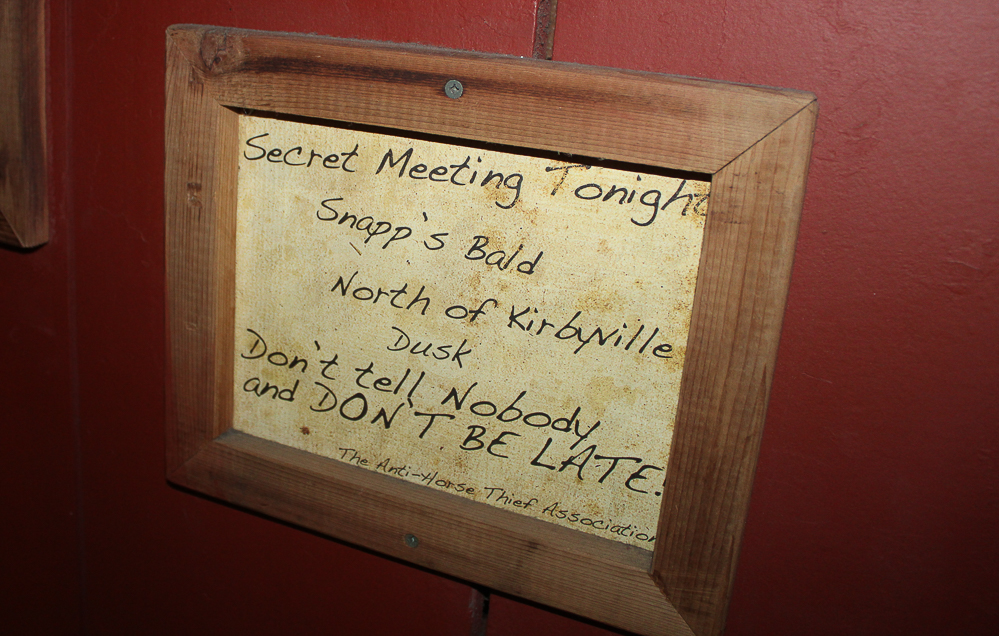 Secret Meeting Tonight
Snapp's Bald
North of Kirbyville
Dusk
Don't tell Nobody
and DON'T BE LATE!
The Anti-Horse Thief Association